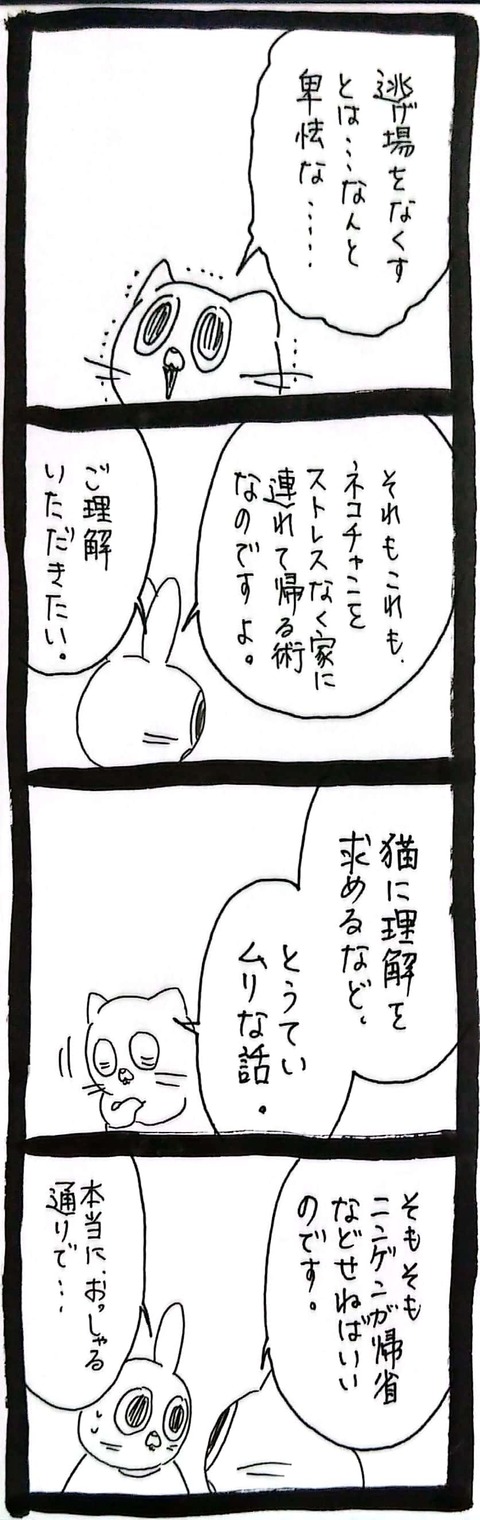 逃げ場をなくす
とは…なんと
卑怯な……
それもこれも、
ネコチャンを
ストレスなく家に
連れて帰る術
なのですよ。
ご理解
いただきたい。
猫に理解を
求めるなど、
とうてい
ムリな話。
そもそも
ニンゲンが帰省
などせねばいい
のです。
本当に、おっしゃる
通りで…